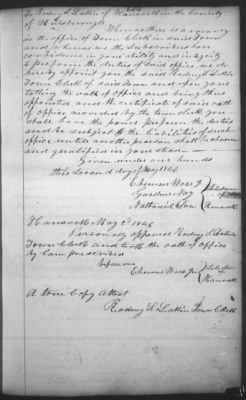 To Rodney S. Lakin of Hancock in the County
of Hillsborough
Whereas there is a vacancy
in the office of Town Clerk in said Town
and whereas we the Subscribers have
confidence in your ability and integrity
to perform the duties of said office we do
hereby appoint you the said Rodney S. Lakin
Town Clerk of said Town and upon your
taking the oath of office and being this
appointment and the certificate of said oath
of office recorded by the town clerk you
shall have the power perform the duties
and be subject to the liabilities of such
office until another person shall be chosen
and qualified in your stead
Given under our hands
this Second day of May 1846
Ebenezer Ware Jr
Nathaniel
Selectmen
of
Hancock
Hancock May 2d 1846
Personally appeared Rodney S. Lakin
Town Clerk and took the oath of office
by law prescribed
Before me
Ebenezer Ware Jr
Selectman
of
Hancock
A true Copy Attest
Rodney S Lakin Town Clerk